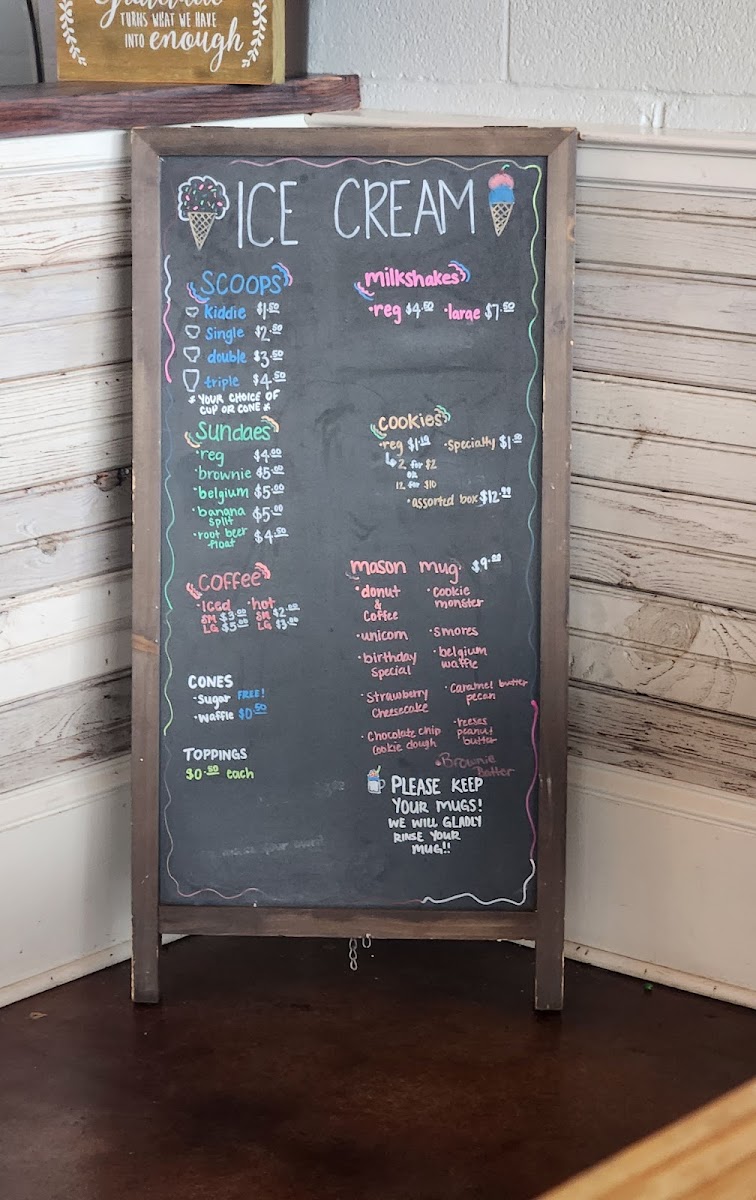 Gratitude
TURNS WHAT WE HAVE
INTO enough
ICE CREAM
SCOOPS
kiddie $1.50
Single $2.50
double $3.50
triple $4.50
* YOUR CHOICE OF
CUP OR CONE *
Sundaes
• reg $4.00
• brownie $5.00
• belgium $5.00
• banana split $5.00
• root beer float $4.50
Coffee
• Iced • hot
SM $3.00 SM $2.00
LG $5.00 LG $3.00
CONES
• Sugar FREE!
• Waffle $0.50
TOPPINGS
$0.50 each
milkshakes
• reg $4.50 • large $7.50
cookies
• reg • Specialty
2 for $2
OR
12 for $10
• assorted box
mason mug
• donut
&
Coffee
• unicorn
• birthday
special
• Strawberry
Cheesecake
• Chocolate chip
cookie dough
• cookie
monster
• smores
• belgium
waffle
• Caramel butter
pecan
• reeses
peanut
butter
• Brownie
Batter
PLEASE KEEP
YOUR MUGS!
WE WILL GLADLY
RINSE YOUR
MUG!!